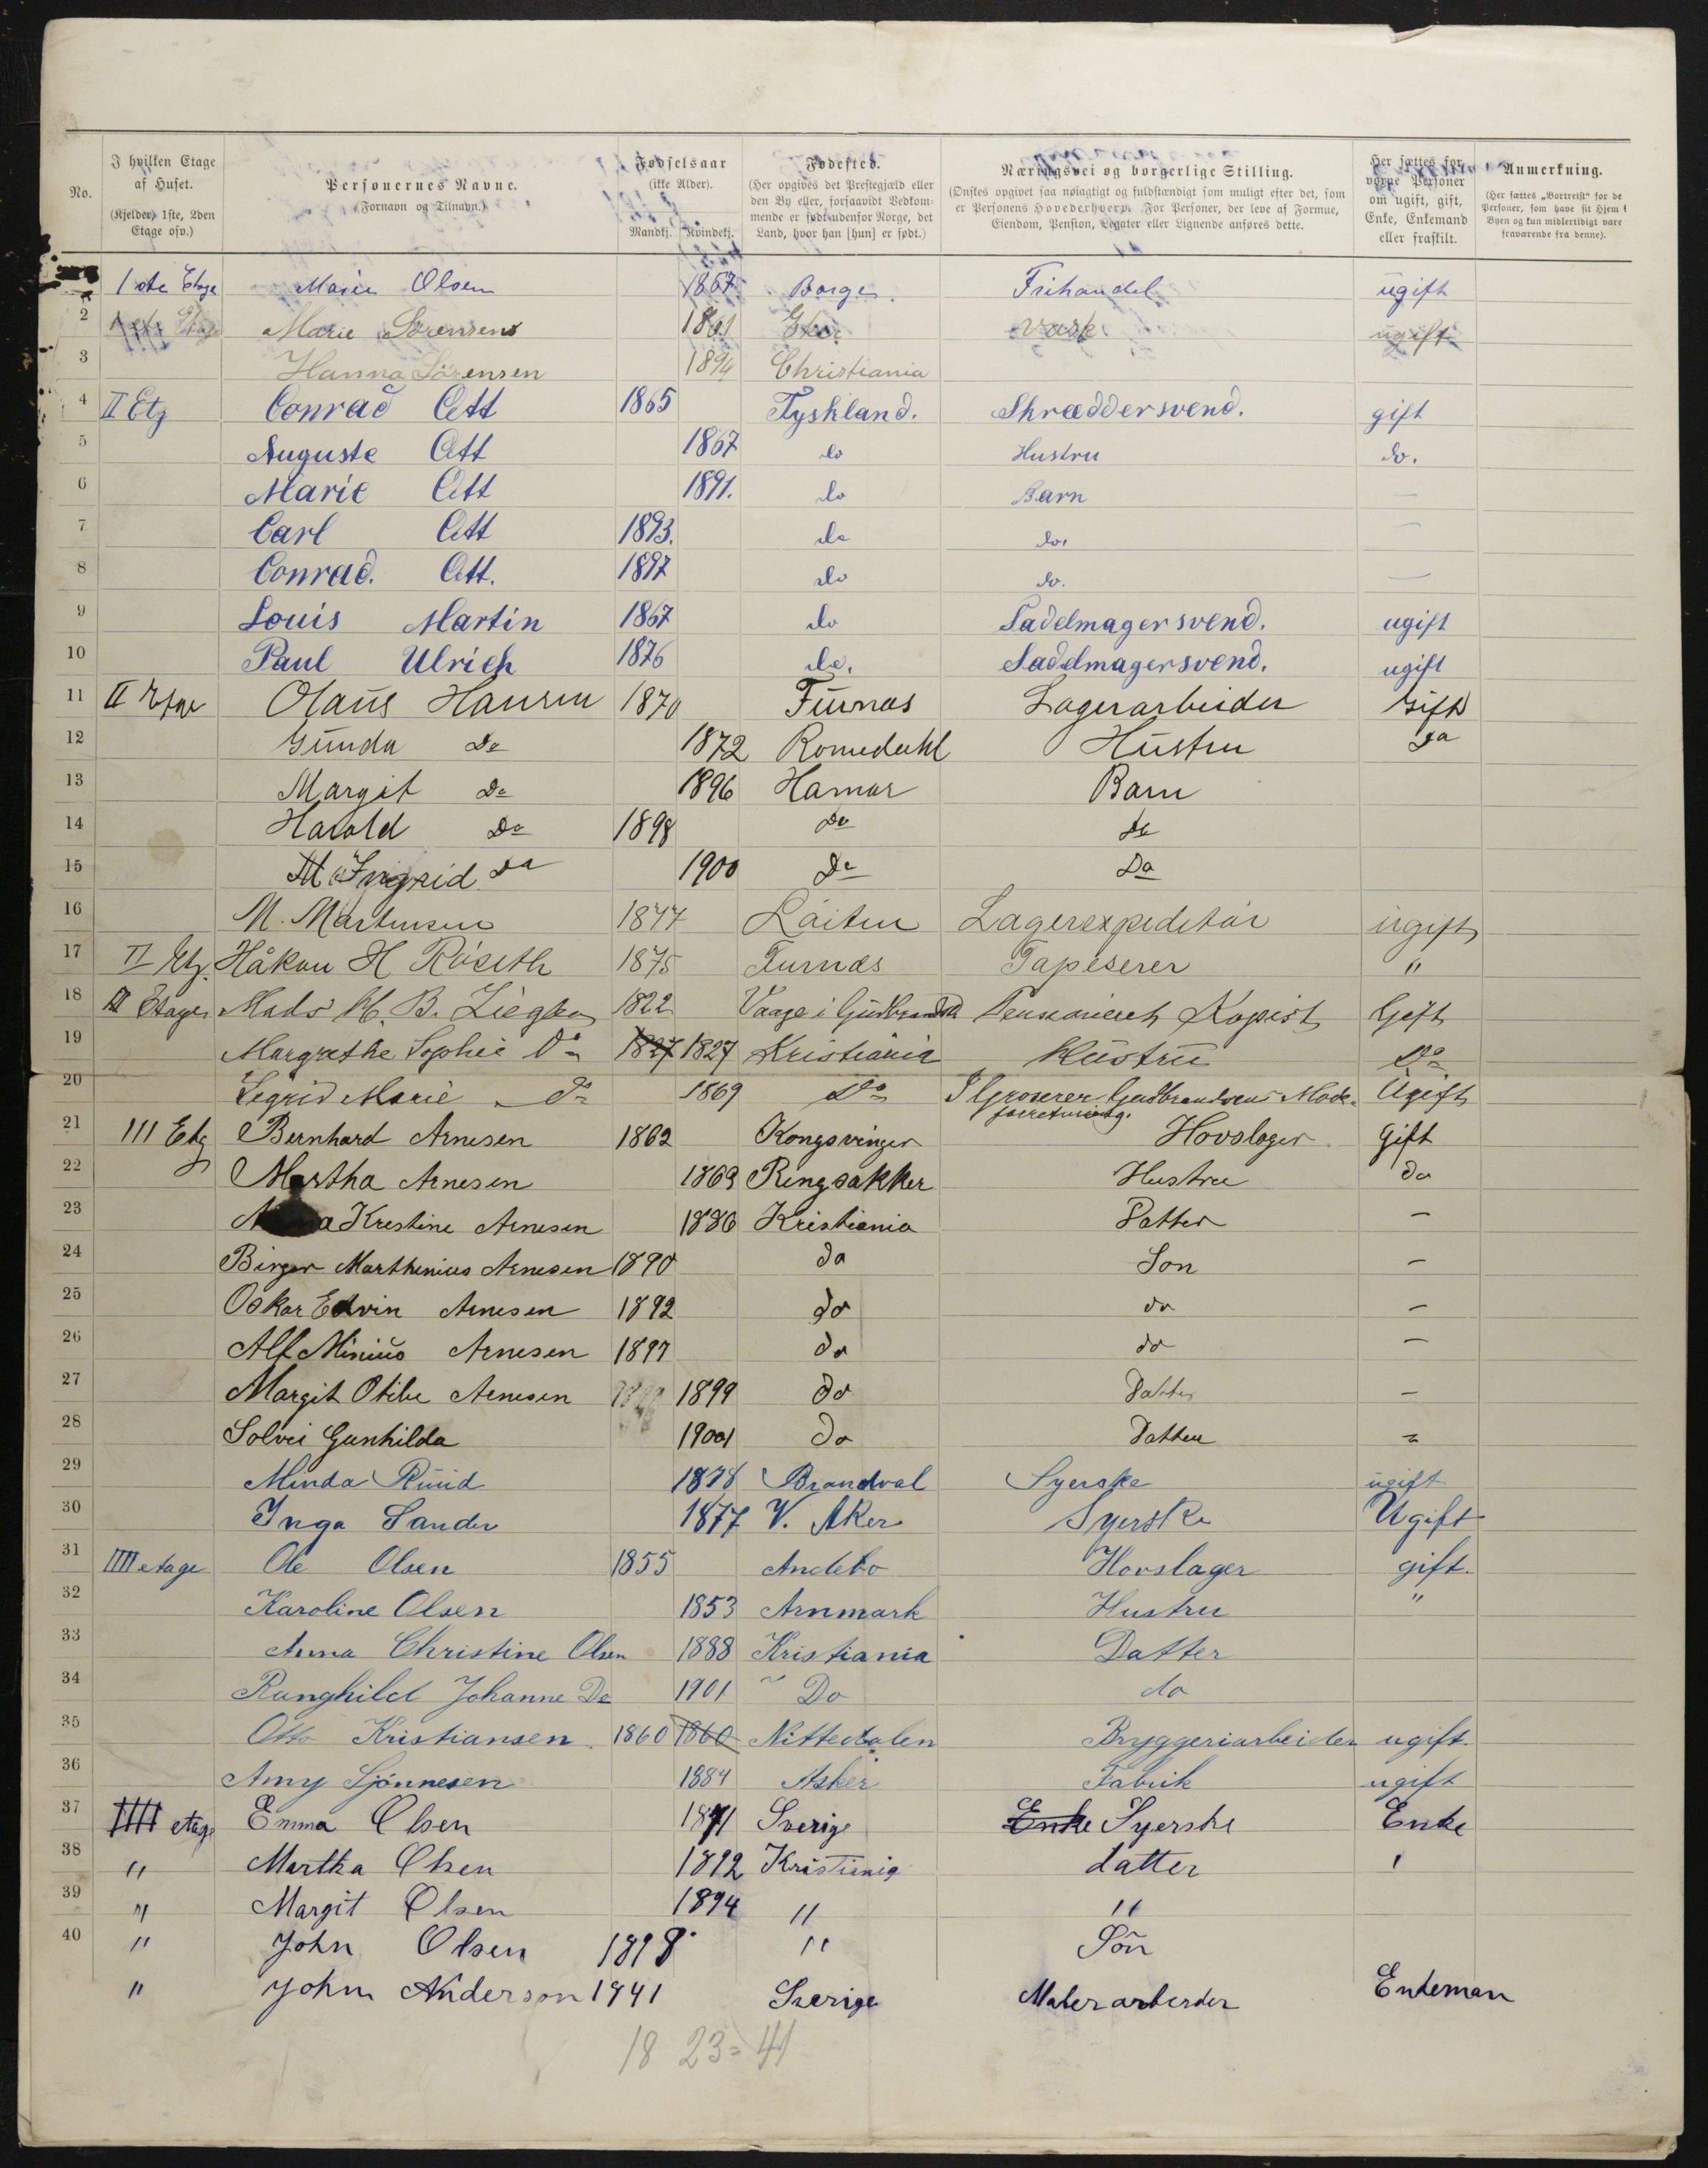 No. | I hvilken Etage af Huset. (Kjelder, 1ste, 2den Etage osv.) | Personernes Navne. (Fornavn og Tilnavn.) | Fødselsaar (ikke Alder). Mandkj. Kvindekj. | Fødested. (Her opgives det Prestegjæld eller den By eller, forsaavidt Vedkommende er født udenfor Norge, det Land, hvor han [hun] er født.) | Næringsvei og borgerlige Stilling. (Ønskes opgivet saa nøiagtigt og fuldstændigt som muligt efter det, som er Personens Hovederhverv. For Personer, der leve af Formue, Eiendom, Pension, Legater eller Lignende anføres dette.) | Her sættes for voxne Personer om ugift, gift, Enke, Enkemand eller fraskilt. | Anmerkning. (Her sættes „Bortreist“ for de Personer, som have sit Hjem i Byen og kun midlertidigt vare fraværende fra denne).
1ste Etage Marie Olsen 1867 Borge Frihandel ugift
2 1ste Etage Marie Sørensens 1861 vask ugift
3 Hanna Sörensen 1894 Christiania
4 II Etg Conrad Ott 1865 Tyskland. Skræddersvend. gift
5 Auguste Ott 1867 do Hustru do.
6 Marie Ott 1891. do Barn —
7 Carl Ott 1893. do do. —
8 Conrad. Ott. 1897 do do. —
9 Louis Martin 1867 do Sadelmagersvend. ugift
10 Paul Ulrich 1876 do. Sadelmagersvend. ugift
11 II Etge Olaus Hansen 1870 Furnæs Lagerarbeider Gift
12 Gunda Do 1872 Romedahl Hustru Do
13 Margit Do 1896 Hamar Barn
14 Harald Do 1898 Do Do
15 Ingrid Do 1900 Do Do
16 M. Martinsen 1877 Löiten Lagerexpeditör ugift
17 II Etg. Håkon H Røseth 1875 Furnæs Tapeserer "
18 III Etage Mads H. B. Ziegler 1822 Vaage i Gudbrandsd. Pensioneret Kopist Gift
19 Margrethe Sophie Do 1827 1827 Kristiania Hustru Do
20 Sigrid Marie Do 1869 Do I Grosserer Gudbrandsens Mode- Ugift
forretning.
21 III Etg Bernhard Arnesen 1862 Kongsvinger Hovslager Gift
22 Martha Arnesen 1863 Ringsakker Hustru do
23 Kristine Arnesen 1886 Kristiania Datter —
24 Birger Marthinius Arnesen 1890 do Son —
25 Oskar Edvin Arnesen 1892 do do —
26 Alf Minius Arnesen 1897 do do —
27 Margit Otilie Arnesen 1899 do Datter —
28 Solvei Gunhilda 1901 do Datter "
29 Minda Ruud 1878 Brandval Syerske ugift
30 Inga Sander 1877 V. Aker Syerske Ugift
31 IIII etage Ole Olsen 1855 Andebo Hovslager gift.
32 Karoline Olsen 1853 Arnmark Hustru "
33 Anna Christine Olsen 1888 Kristiania Datter
34 Ranghild Johanne Do 1901 " Do do
35 Otto Kristiansen 1860 1860 Nittedalen Bryggeriarbeider ugift.
36 Amy Sjönnesen 1884 Asker Fabrik ugift
37 IIII etage Emma Olsen 1871 Sverige Enke Syerske Enke
38 " Martha Olsen 1892 Kristiania datter '
39 " Margit Olsen 1894 " "
40 " John Olsen 1898 " Sön
" John Anderson 1841 Sverige Malerarbeider Enkeman
18 23 = 41